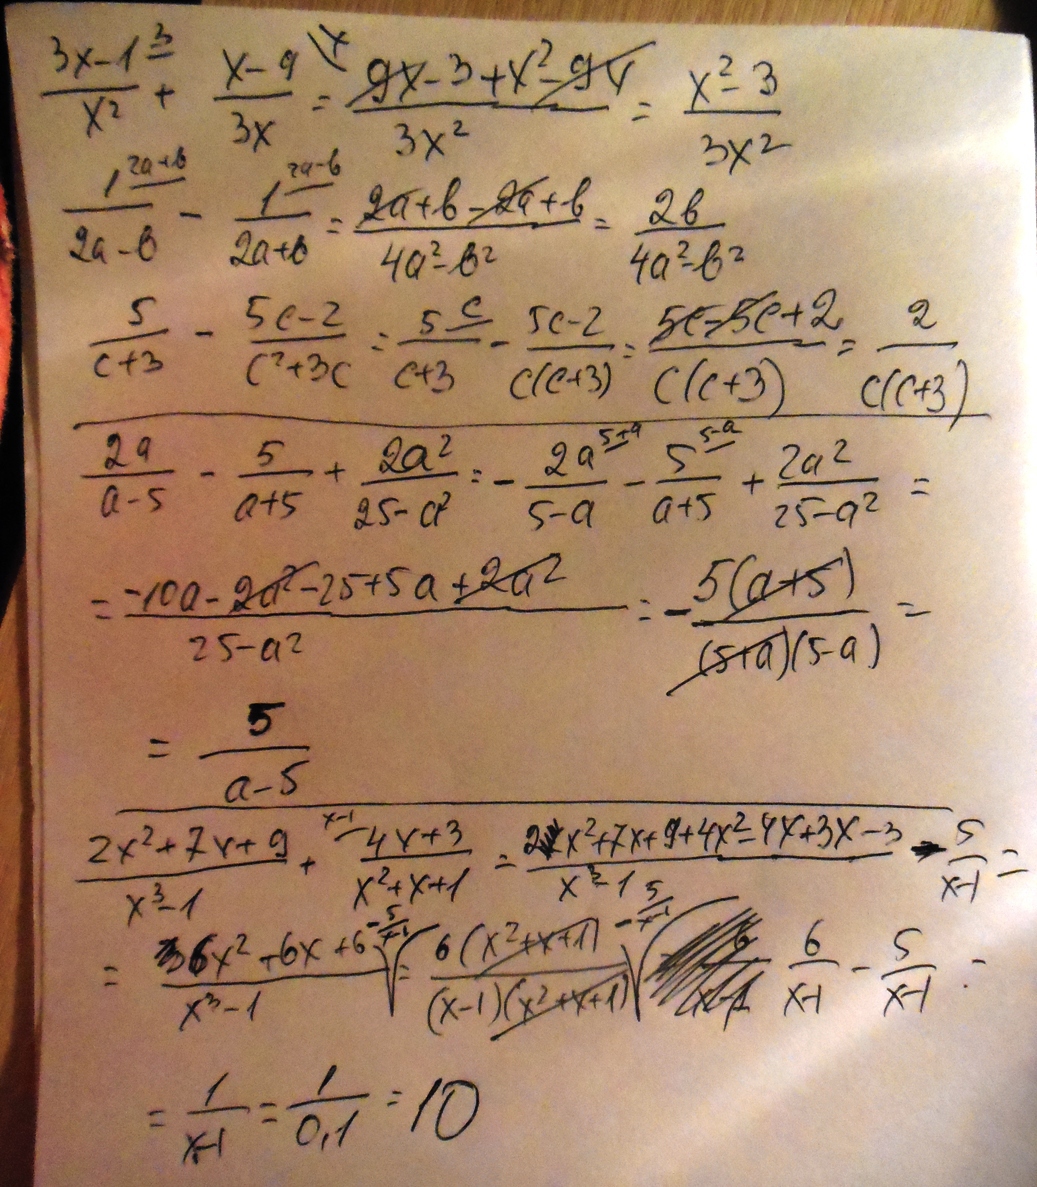 (3x-1^3)/x² + (x-9\x)/3x = (9x-3+x²-9x)/3x² = (x²-3)/3x²
1^(2a+b)/(2a-b) - 1^(2a-b)/(2a+b) = (2a+b-2a+b)/(4a²-b²) = 2b/(4a²-b²)
5/(c+3) - (5c-2)/(c²+3c) = 5^c/(c+3) - (5c-2)/(c(c+3)) = (5c-5c+2)/(c(c+3)) = 2/(c(c+3))
2a/(a-5) - 5/(a+5) + 2a²/(25-a²) = - 2a^(5+a)/(5-a) - 5^(5-a)/(a+5) + 2a²/(25-a²) =
= (-10a-2a²-25+5a+2a²)/(25-a²) = - 5(a+5)/((5+a)(5-a)) =
= 5/(a-5)
(2x²+7x+9)/(x³-1) + ^(x-1)(4x+3)/(x²+x+1) = (2x²+7x+9+4x²-4x+3x-3)/(x³-1) - 5/(x-1) =
= (6x²+6x+6)/(x³-1) - 5/(x-1) = 6(x²+x+1)/((x-1)(x²+x+1)) - 5/(x-1) = 6/(x-1) - 5/(x-1) =
= 1/(x-1) = 1/0,1 = 10